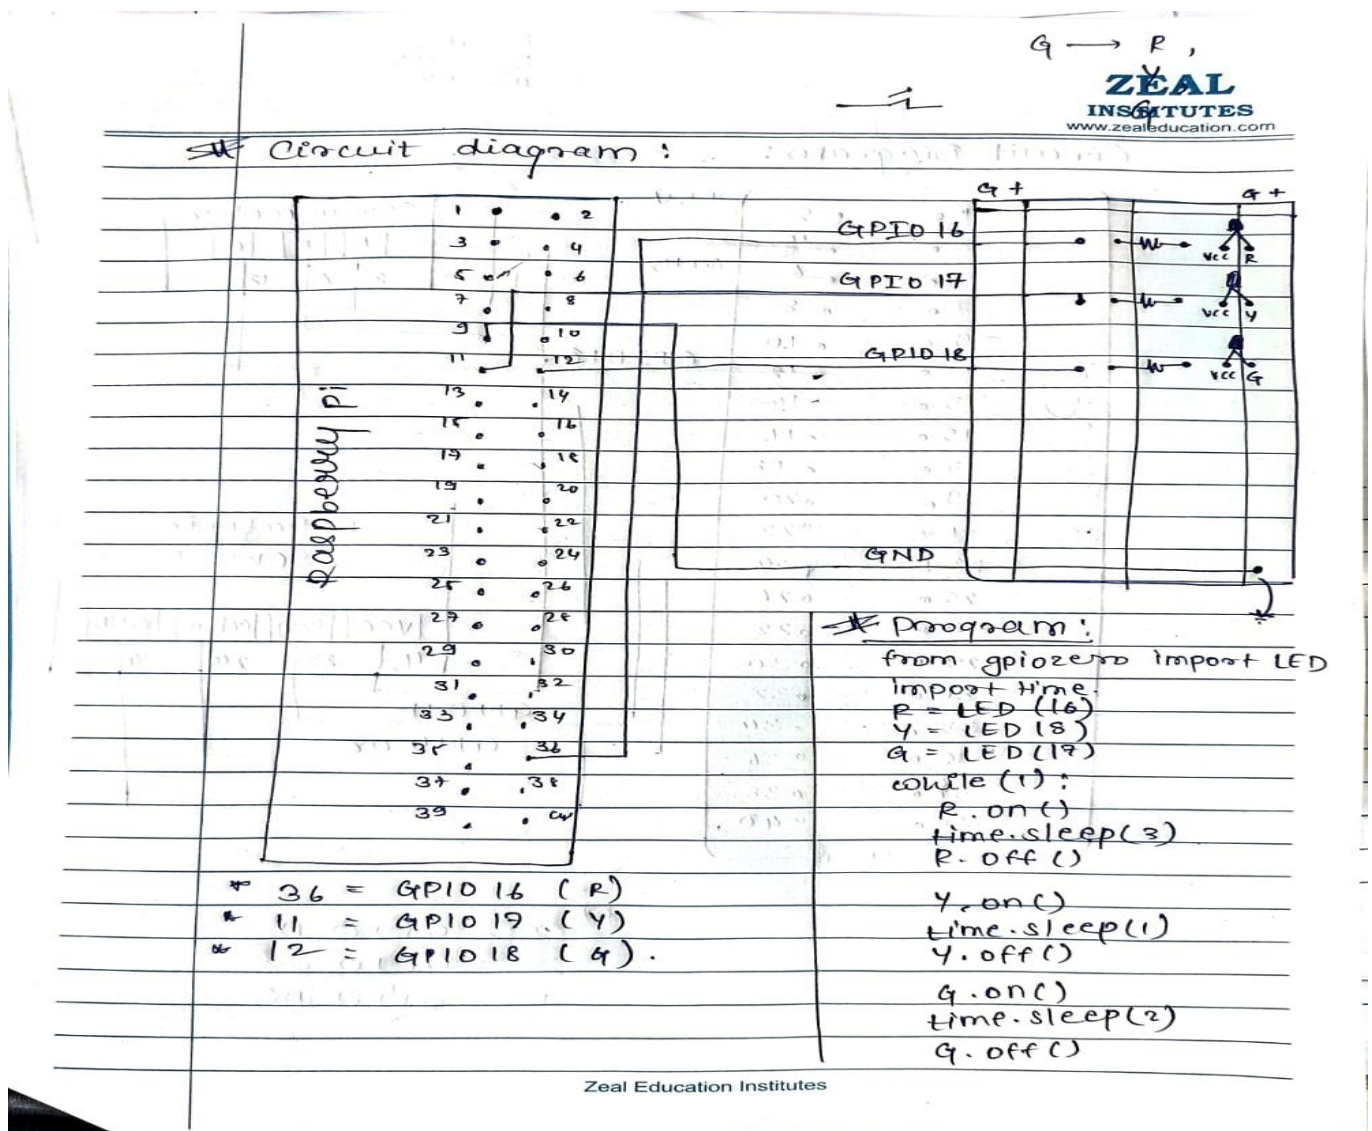 G → R,
Y
G
ZEAL
INSTITUTES
www.zealeducation.com
* Circuit diagram :
G +
G +
1 2
3 4
5 6
7 8
9 10
11 12
13 14
15 16
17 18
19 20
21 22
23 24
25 26
27 28
29 30
31 32
33 34
35 36
37 38
39 40
Raspberry pi
GPIO 16
GPIO 17
GPIO 18
GND
VCC R
VCC Y
VCC G
* 36 = GPIO 16 (R)
* 11 = GPIO 17 (Y)
* 12 = GPIO 18 (G).
* Program :
from gpiozero import LED
import time.
R = LED (16)
Y = LED 18)
G = LED (17)
while (1) :
R.on()
time.sleep(3)
R.off()
Y.on()
time.sleep(1)
Y.off()
G.on()
time.sleep(2)
G.off()
Zeal Education Institutes